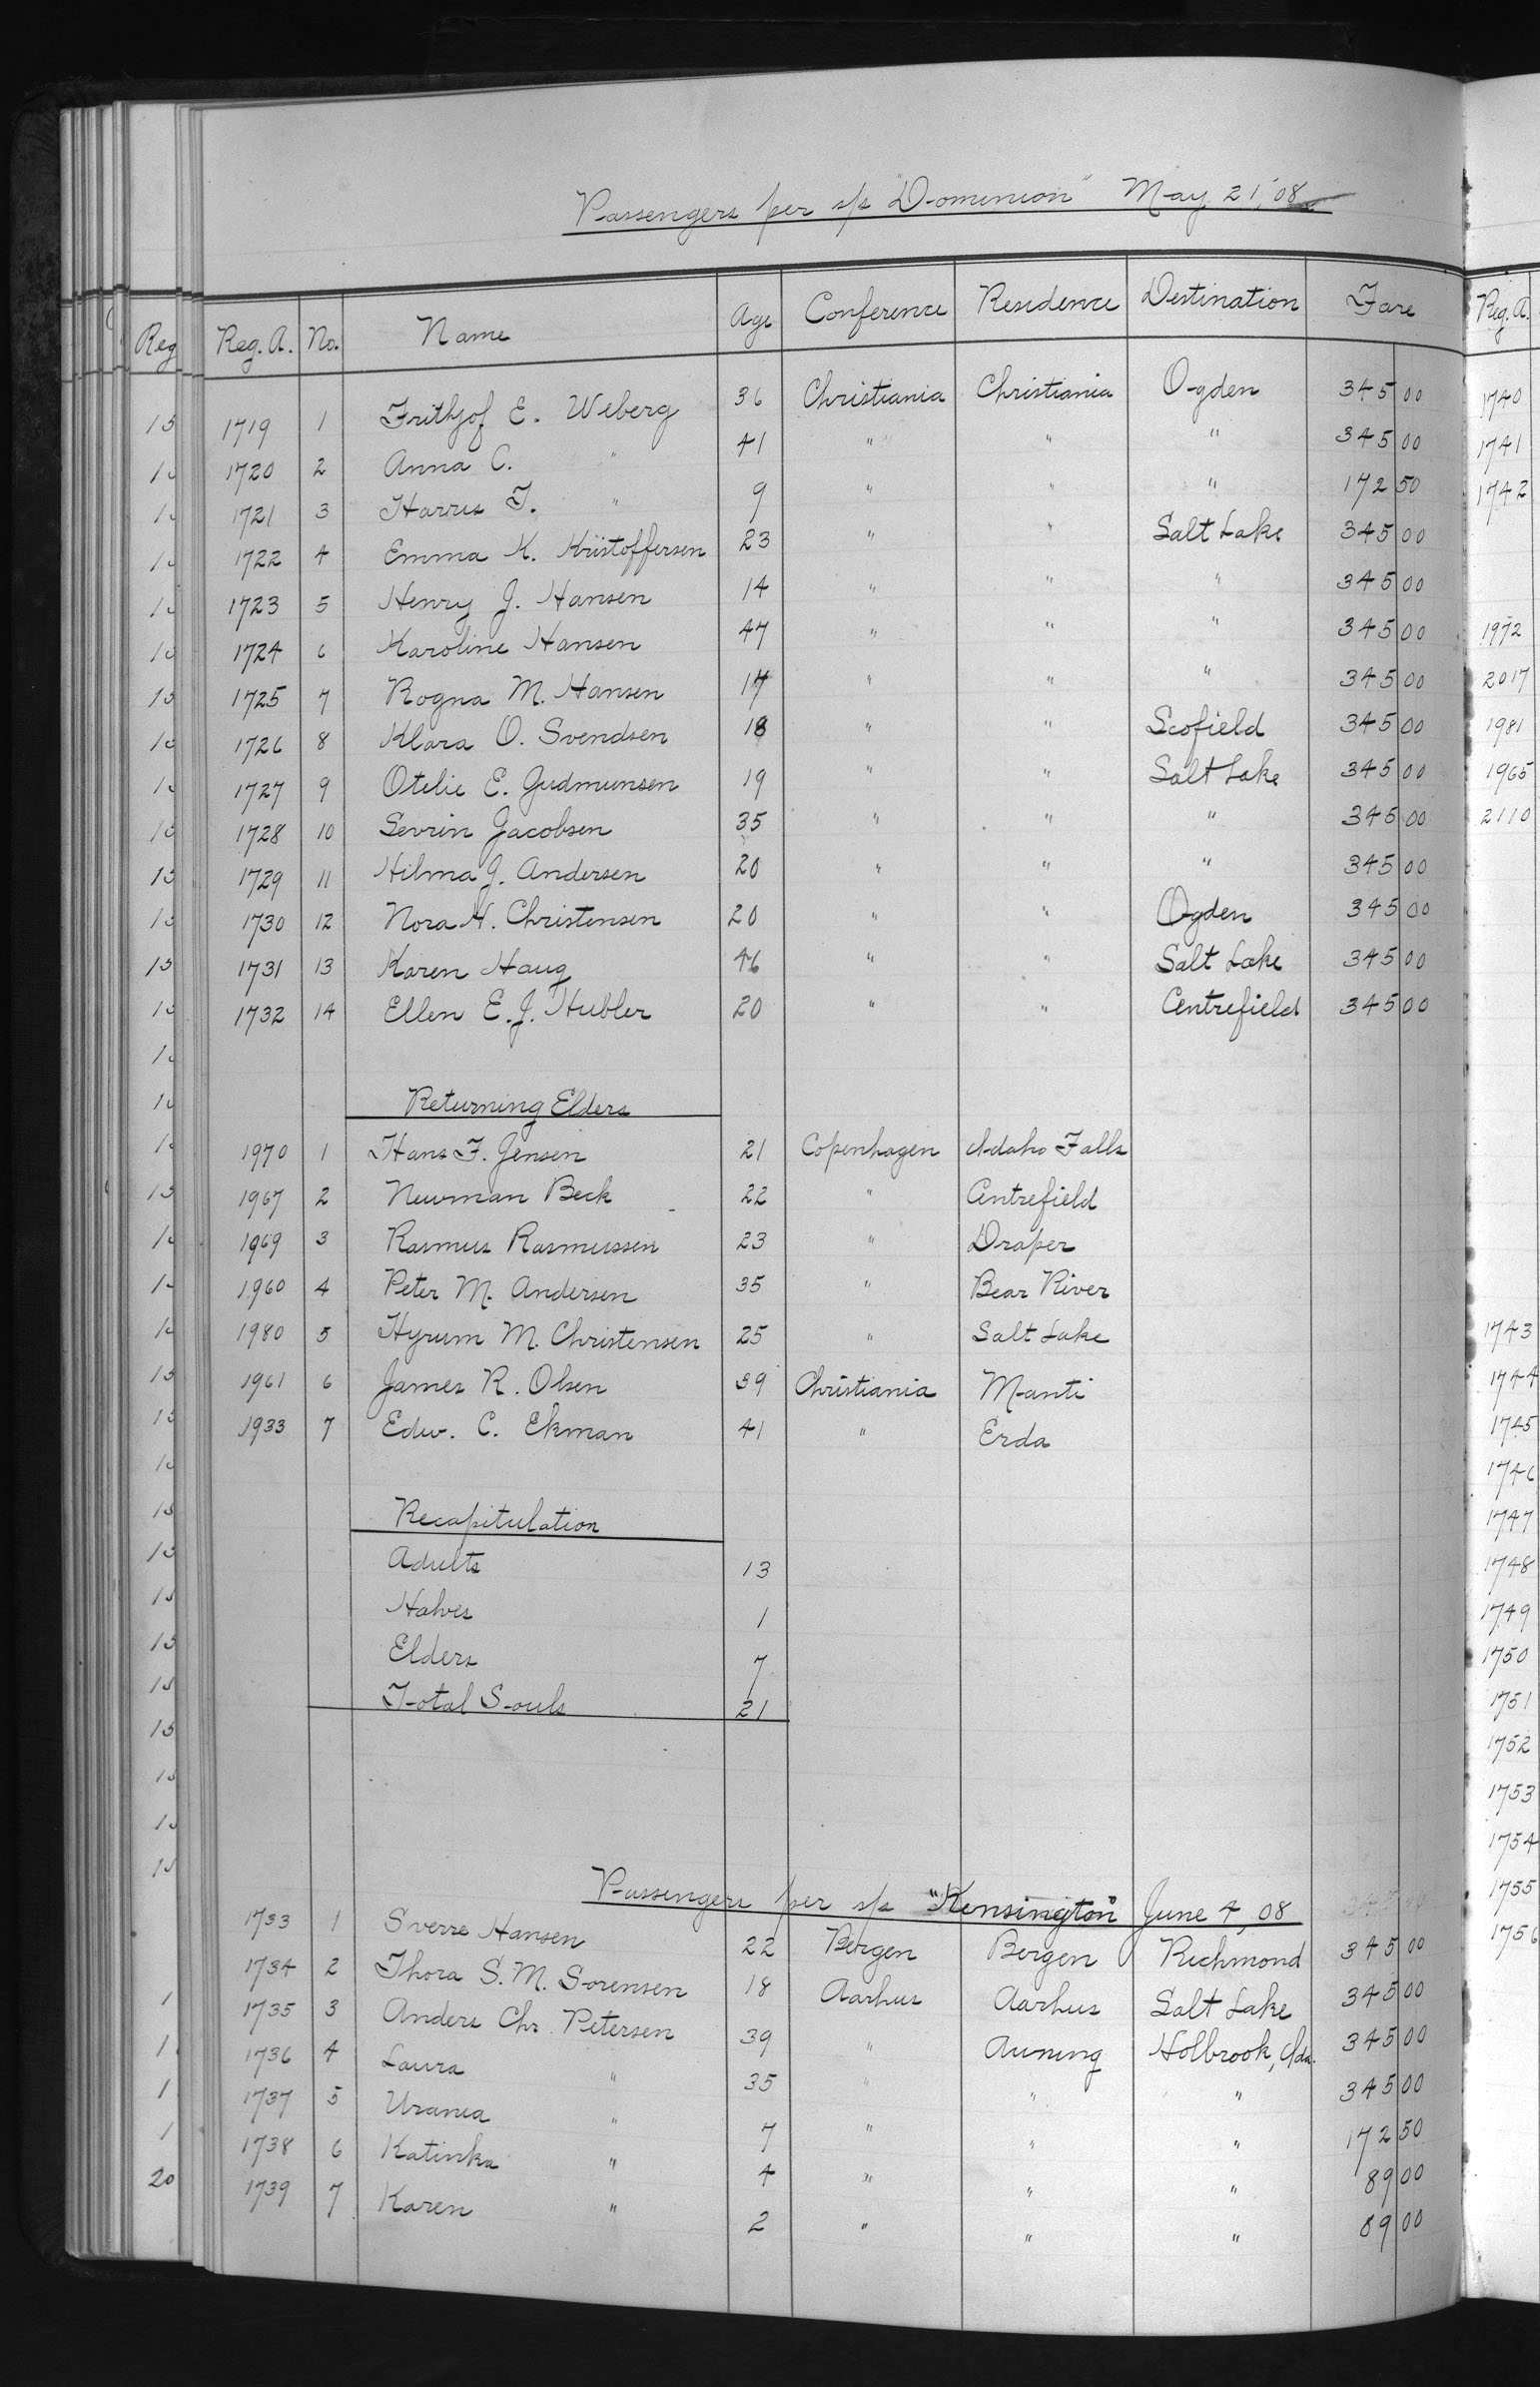 Passengers per s/s "Dominion" May 21, '08
Reg. A. No. Name Age Conference Residence Destination Fare
1719 1 Frithjof E. Weberg 36 Christiania Christiania Ogden 345 00
1720 2 Anna C. " 41 " " " 345 00
1721 3 Harris F. " 9 " " " 172 50
1722 4 Emma K. Kristoffersen 23 " " Salt Lake 345 00
1723 5 Henry J. Hansen 14 " " " 345 00
1724 6 Karoline Hansen 47 " " " 345 00
1725 7 Rogna M. Hansen 17 " " " 345 00
1726 8 Klara O. Svendsen 18 " " Scofield 345 00
1727 9 Otelie E. Gudmunsen 19 " " Salt Lake 345 00
1728 10 Sevrin Jacobsen 35 " " " 345 00
1729 11 Hilma J. Andersen 20 " " " 345 00
1730 12 Nora H. Christensen 20 " " Ogden 345 00
1731 13 Karen Haug 46 " " Salt Lake 345 00
1732 14 Ellen E. J. Hubler 20 " " Centrefield 345 00
Returning Elders
1970 1 Hans F. Jensen 21 Copenhagen Idaho Falls
1967 2 Newman Beck 22 " Centrefield
1969 3 Rasmus Rasmussen 23 " Draper
1960 4 Peter M. Andersen 35 " Bear River
1980 5 Hyrum M. Christensen 25 " Salt Lake
1961 6 James R. Olsen 39 Christiania Manti
1933 7 Edw. C. Ekman 41 " Erda
Recapitulation
Adults 13
Halves 1
Elders 7
Total Souls 21
Passengers per s/s "Kensington" June 4, 08
1733 1 Sverre Hansen 22 Bergen Bergen Richmond 345 00
1734 2 Thora S. M. Sorensen 18 Aarhus Aarhus Salt Lake 345 00
1735 3 Anders Chr. Petersen 39 " Auning Holbrook, Ida. 345 00
1736 4 Laura " 35 " " " 345 00
1737 5 Urania " 7 " " " 172 50
1738 6 Katinka " 4 " " " 89 00
1739 7 Karen " 2 " " " 89 00
Reg
20
Reg. A.
1740
1741
1742
1972
2017
1981
1965
2110
1743
1744
1745
1746
1747
1748
1749
1750
1751
1752
1753
1754
1755
1756